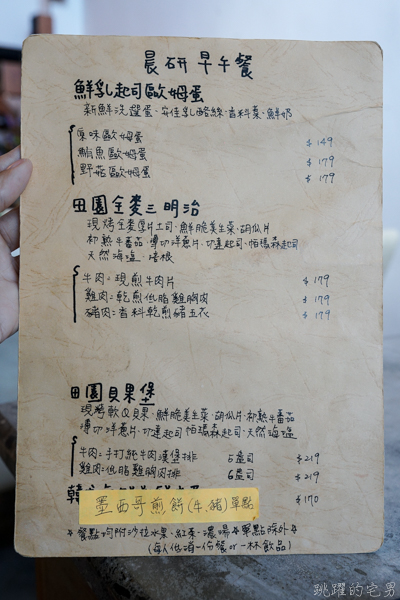 晨研早午餐
鮮乳起司歐姆蛋
新鮮洗選蛋、安佳乳酪絲、香料菜、鮮奶
原味歐姆蛋 $149
鮪魚歐姆蛋 $179
野菇歐姆蛋 $179
田園全麥三明治
現烤全麥厚片土司、鮮脆美生菜、胡瓜片
初熟牛蕃茄、薄切洋蔥片、切達起司、帕瑪森起司
天然海塩、培根
牛肉=現煎牛肉片 $179
雞肉=乾煎低脂雞胸肉 $179
豬肉=香料乾煎豬五花 $179
田園貝果堡
現烤軟Q貝果、鮮脆美生菜、胡瓜片、初熟牛蕃茄
薄切洋蔥片、切達起司、帕瑪森起司、天然海塩
牛肉=手打純牛肉漢堡排 5盎司 $219
雞肉=低脂雞胸肉排 6盎司 $219
墨西哥煎餅(牛、豬)單點 $170
*餐點均附沙拉水果、紅茶、濃湯*單點除外*
(每人低消一份餐or一杯飲品)
跳躍的宅男